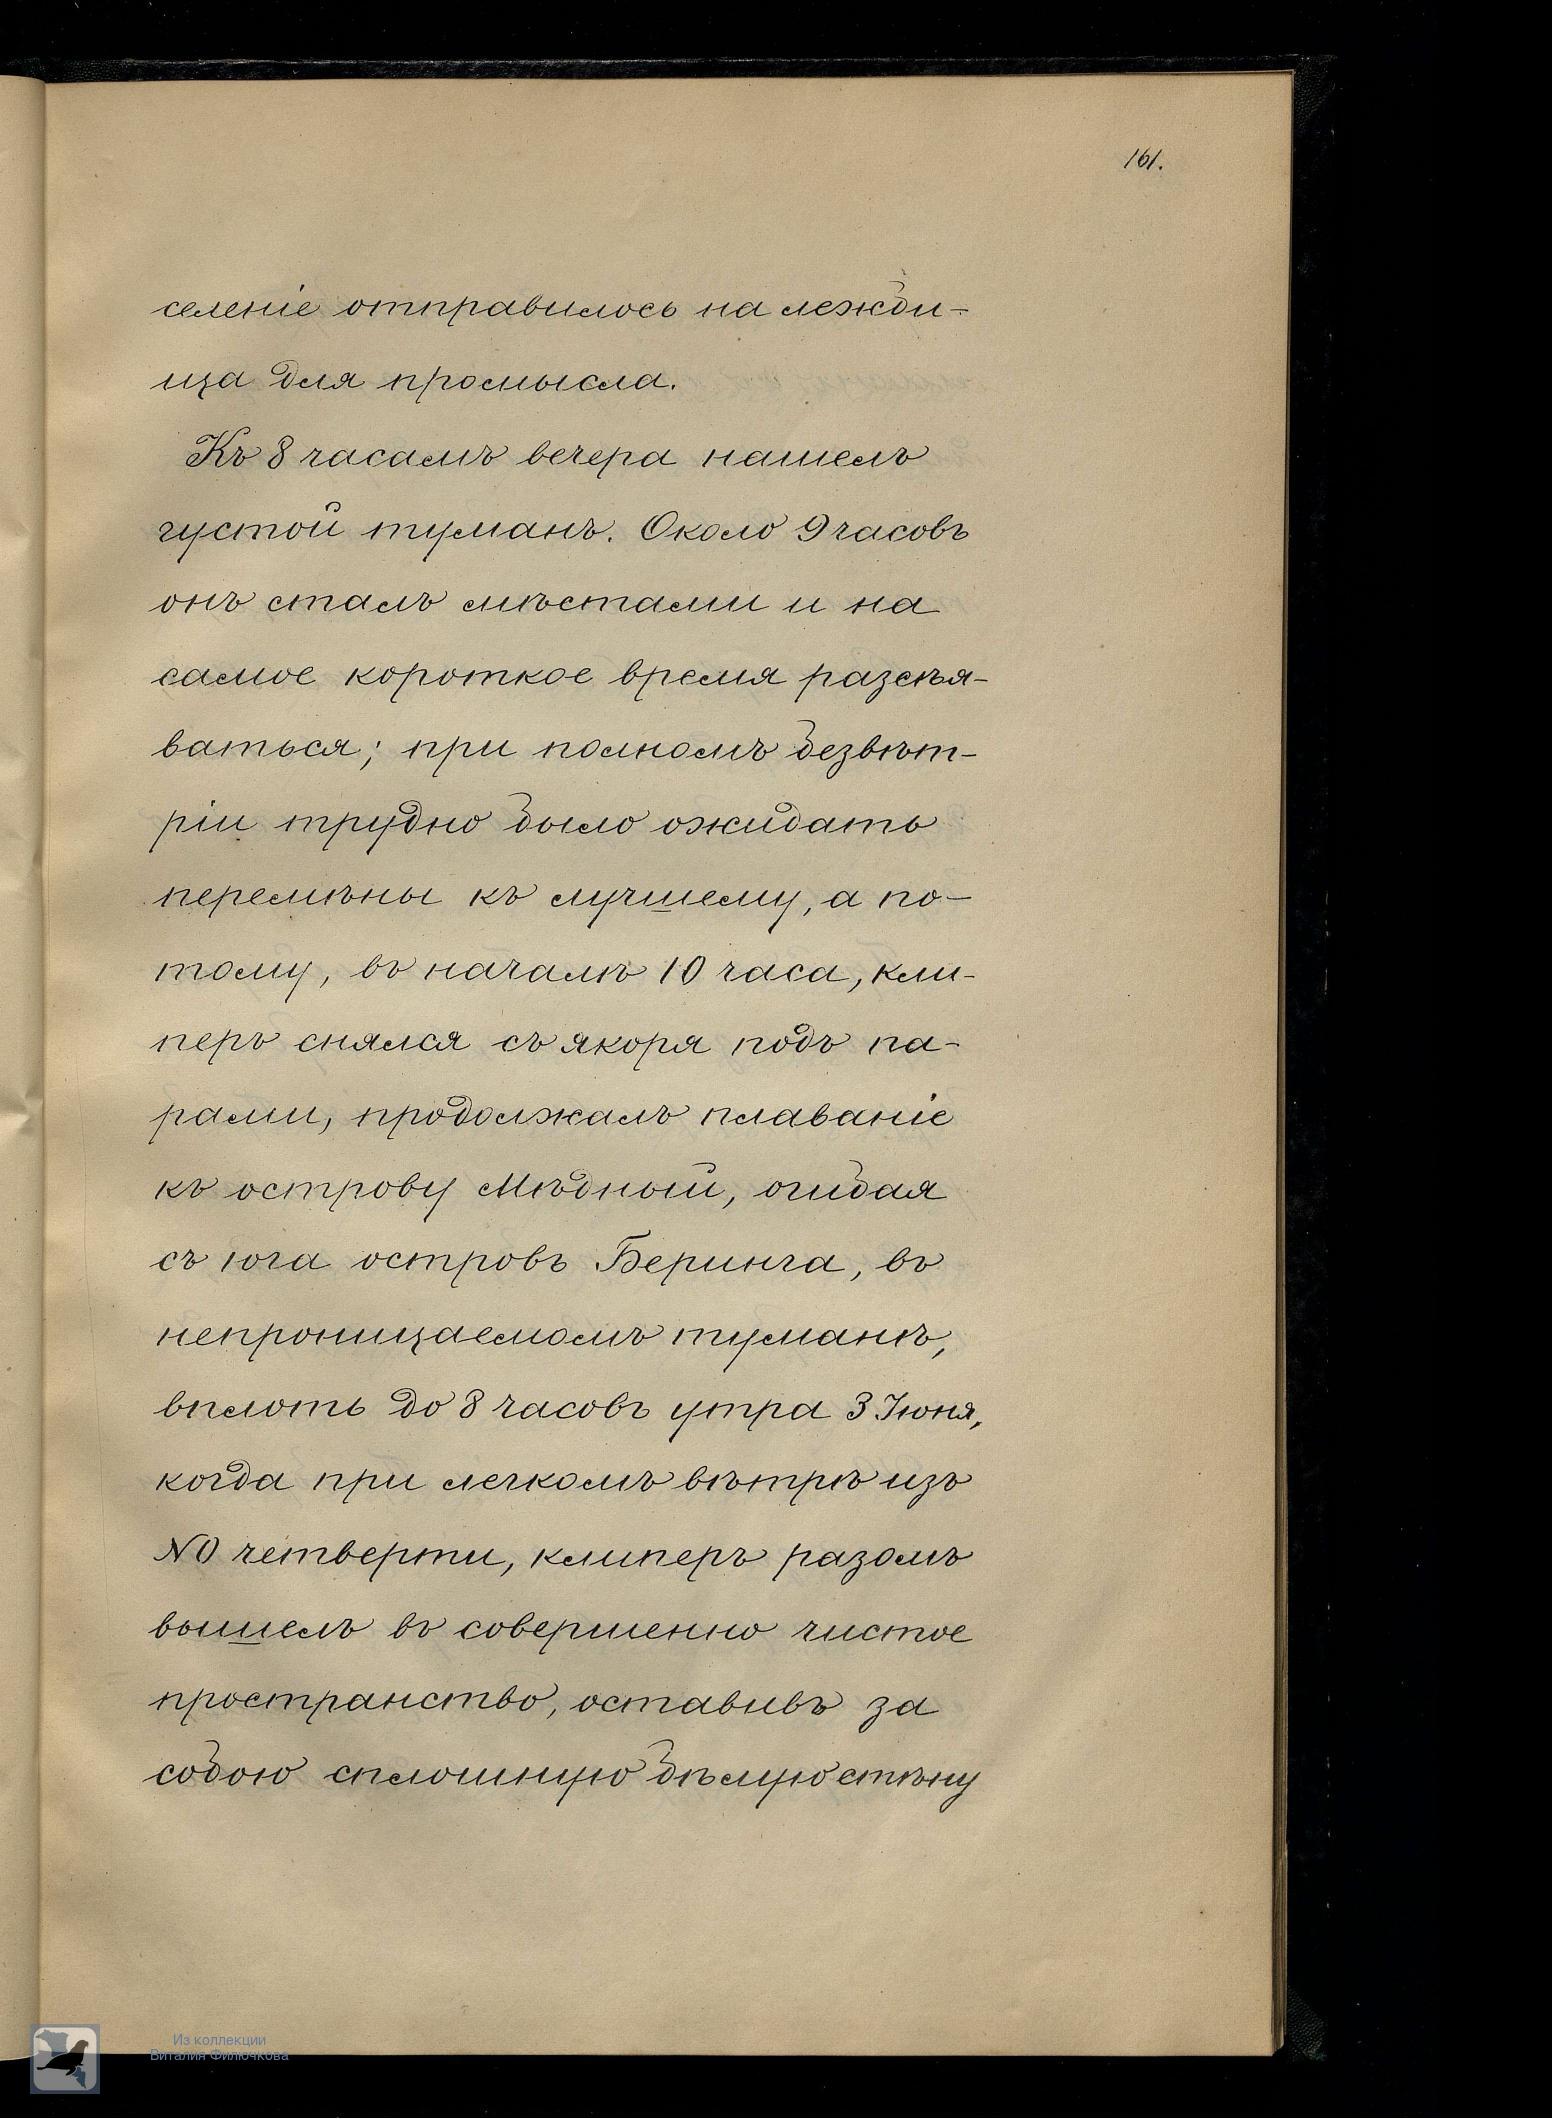 161.
селеніе отправилось на лежби-
ща для промысла.
Къ 8 часамъ вечера нашелъ
густой туманъ. Около 9 часовъ
онъ сталъ мѣстами и на
самое короткое время разсѣя-
ваться; при полномъ безвѣт-
ріи трудно было ожидать
перемѣны къ лучшему, а по-
тому, въ началѣ 10 часа, кли-
перъ снялся съ якоря подъ па-
рами, продолжалъ плаваніе
къ острову Мѣдный, огибая
съ юга островъ Беринга, въ
непроницаемомъ туманѣ,
вплоть до 8 часовъ утра 3 Іюня,
когда при легкомъ вѣтрѣ изъ
NO четверти, клиперъ разомъ
вышелъ въ совершенно чистое
пространство, оставивъ за
собою сплошную бѣлую стѣну
Из коллекции
Виталия Филючкова